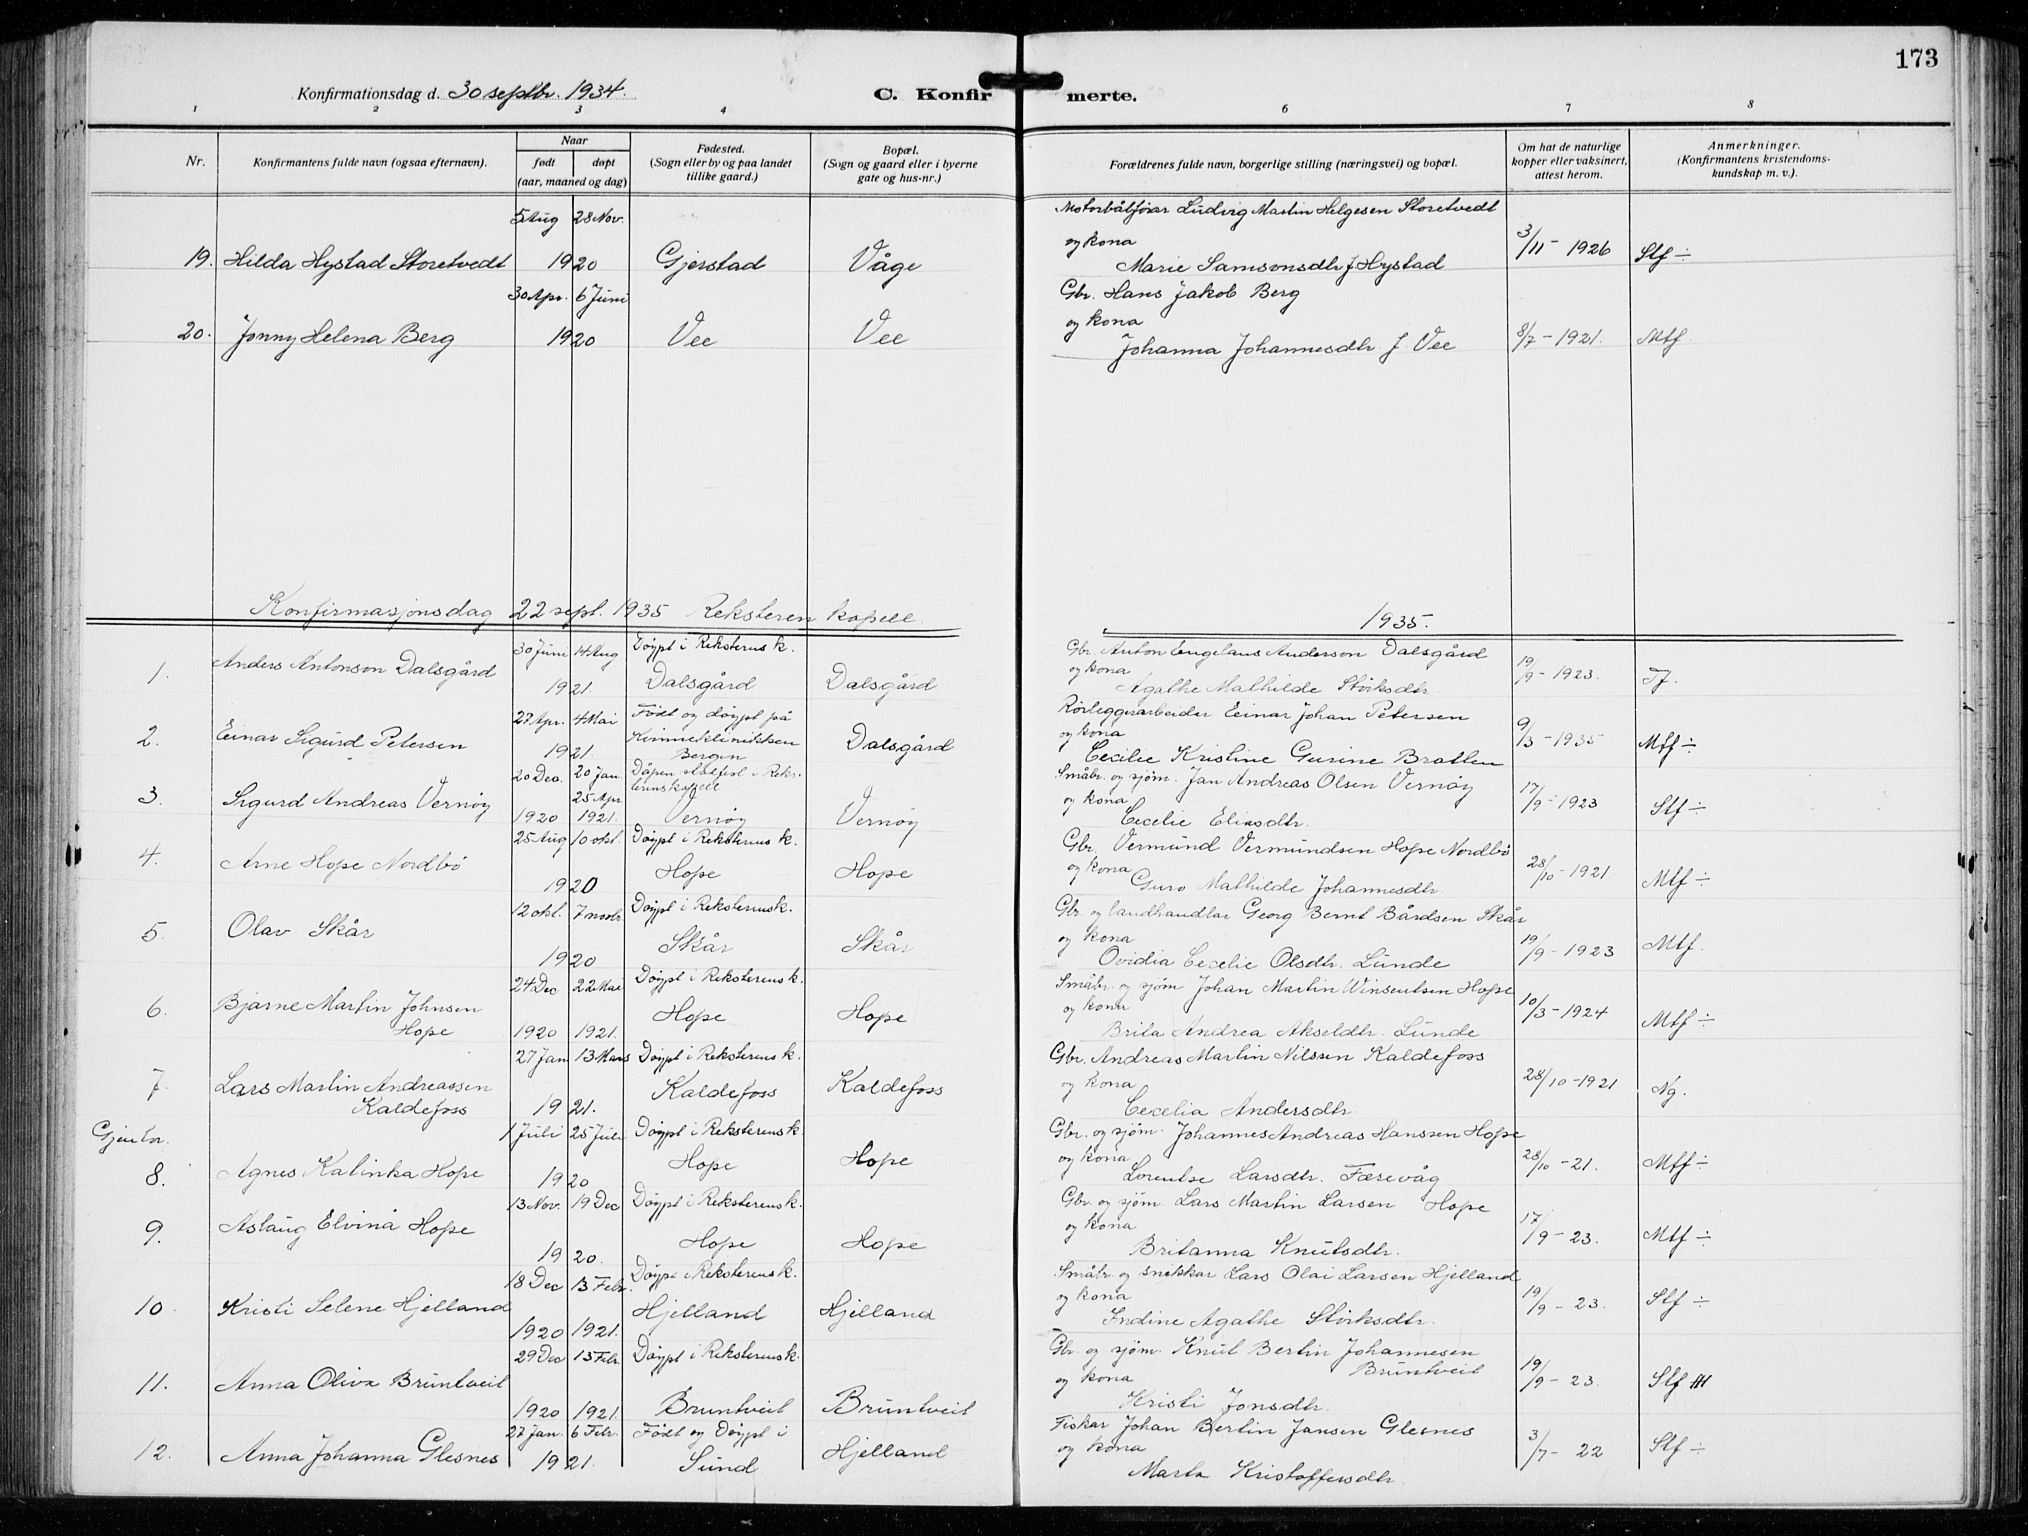 173
Konfirmationsdag d. 30 septbr. 1934.
C. Konfirmerte.
1 2 3 4 5 6 7 8
Nr.
Konfirmantens fulde navn (ogsaa efternavn).
Naar
født døpt
(aar, maaned og dag)
Fødested.
(Sogn eller by og paa landet
tillike gaard.)
Bopæl.
(Sogn og gaard eller i byerne
gate og hus-nr.)
Forældrenes fulde navn, borgerlige stilling (næringsvei) og bopæl.
Om hat de naturlige
kopper eller vaksinert,
attest herom.
Anmerkninger.
(Konfirmantens kristendoms-
kundskap m. v.).
5 Aug 28 Nov. Motorbåtförar Ludvig Martin Helgesen Storetvedt
og kona
19. Hilda Hystad Storetvedt 1920 Gjerstad Våge Marie Samsonsdtr f. Hystad 3/11 - 1926 Stf ÷
30 Apr. 6 Juni Gbr. Hans Jakob Berg
og kona
20. Jonny Helena Berg 1920 Vee Vee Johanna Johannesdtr. f. Vee 8/7 - 1921. Mtf
Konfirmasjonsdag 22 sept. 1935 Reksteren kapell. 1935.
30 Juni 14 Aug Döypt i Reksterens k. Gbr. Anton Engelaus Anderson Dalsgård
og kona
1. Anders Antonson Dalsgård 1921. Dalsgård Dalsgård Agathe Mathilde Störksdtr. 19/9 - 1923. Tf.
27 Apr. 4 Mai Födt og döypt på Rörleggerarbeider Einar Johan Petersen
og kona
2. Einar Sigurd Petersen 1921. Kvinneklinikken Dalsgård 9/3 - 1935 Mtf ÷
Bergen Cecilie Kristine Gurine Bratten
20 Dec. 20 Jan. Dåpen stadfest i Rekste-
renskapell Småbr. og sjöm. Jan Andreas Olsen Vernöy
og kona
3. Sigurd Andreas Vernöy 25 Apr 17/9 - 1923 Stf ÷
1920 1921. Vernöy Vernöy Cecelie Eliasdtr.
25 Aug 10 okt. Döypt i Reksterens k. Gbr. Vermund Vermundsen Hope Nordbö
og kona
4. Arne Hope Nordbö 1920 Hope Hope Guro Mathilde Johannesdtr. 28/10 - 1921 Mtf ÷
12 okt. 7 novbr Döypt i Reksterensk. Gbr. og landhandlar Georg Bernt Bårdsen Skår
og kona
5. Olav Skår 1920 Skår Skår Ovidia Cecelie Olsdtr. Lunde 19/9 - 1923 Mtf.
24 Dec 22 Mai Döypt i Reksterens k. Småbr. og sjöm Johan Martin Winsentsen Hope
og kona
6. Bjarne Martin Johnsen
Hope 1920 1921. Hope Hope Brita Andrea Akseldtr. Lunde 10/3 - 1924 Mtf ÷
27 Jan 13 Mars Döypt i Reksterens k. Gbr. Andreas Martin Nilssen Kaldefoss
og kona
7. Lars Martin Andreassen
Kaldefoss 1921. Kaldefoss Kaldefoss Cecelia Andersdtr. 28/10 - 1921 Ng.
Gjentor.
1 Juli 25 Juli Döypt i Reksterens k. Gbr. og sjöm. Johannes Andreas Hanssen Hope
og kona
8. Agnes Katinka Hope 1920 Hope Hope Lorentse Larsdtr. Færevåg 28/10 - 21. Mtf ÷
13 Nov. 19 Dec Döypt i Reksterensk. Gbr. og sjöm. Lars Martin Larsen Hope
og kona
9. Aslaug Elvina Hope 1920. Hope Hope Britanna Knutsdtr. 17/9 - 23. Mtf ÷
18 Dec 13 Febr. Döypt i Reksterens k. Småbr og snekkar Lars Olai Larsen Hjelland
og kona
10. Kristi Selene Hjelland 1920 1921. Hjelland Hjelland Indine Agathe Störksdtr. 19/9 - 23. Stf ÷
29 Dec 13 Febr. Döypt i Reksterens k. Gbr. og sjöm. Knut Bertin Johannesen
Bruntveit
og kona
11. Anna Oliva Bruntveit 1920 1921. Bruntveit Bruntveit Kristi Jonsdtr. 19/9 - 23. Stf
27 Jan. 6 Febr. Födt og Döypt i Fiskar Johan Bertin Jansen Glesnes
og kona
12. Anna Johanna Glesnes 1921. Sund Hjelland Marta Kristoffersdtr. 3/7 - 22 Stf ÷